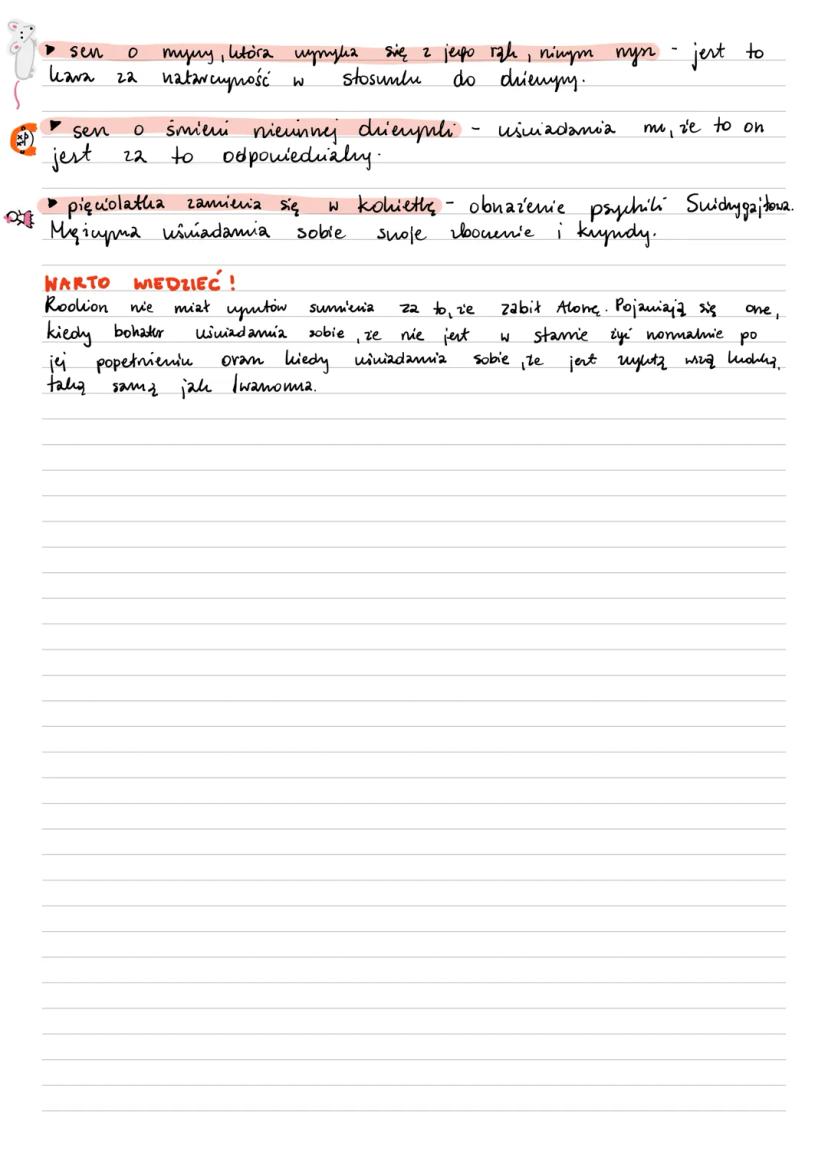 ▶ sen o myszy, która wymyka się z jego rąk, niczym mysz - jest to
kara za natarczywość w stosunku do dziewczyn.
▶ sen o śmierci niewinnej dziewczynki - uświadamia mu, że to on
jest za to odpowiedzialny.
▶ pięciolatka zamienia się w kobietkę - obnażenie psychiki Swidrygajłowa.
Mężczyzna uświadamia sobie swoje zboczenie i krzywdy.
WARTO WIEDZIEĆ!
Rodion nie miał wyrzutów sumienia za to, że zabił Alonę. Pojawiają się one,
kiedy bohater uświadamia sobie, że nie jest w stanie żyć normalnie po
jej popełnieniu oraz kiedy uświadamia sobie, że jest zwykłą wszą ludzką,
taką samą jak Iwanowna.